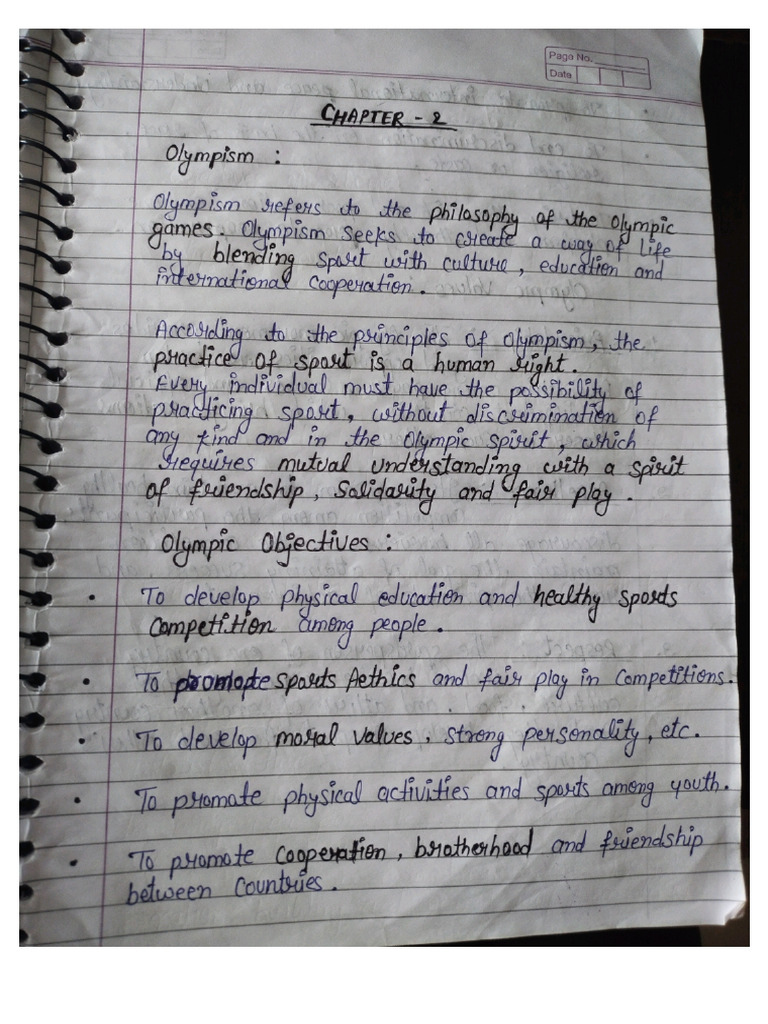 Page No.
Date
CHAPTER - 2
Olympism :
Olympism refers to the philosophy of the Olympic
games. Olympism seeks to create a way of life
by blending sport with culture, education and
international cooperation.
According to the principles of Olympism, the
practice of sport is a human right.
Every individual must have the possibility of
practicing sport, without discrimination of
any kind and in the Olympic spirit, which
requires mutual understanding with a spirit
of friendship, Solidarity and fair play.
Olympic Objectives :
• To develop physical education and healthy sports
competition among people.
• To promote sports Aethics and fair play in Competitions.
• To develop moral values, strong personality, etc.
• To promote physical activities and sports among youth.
• To promote cooperation, brotherhood and friendship
between Countries.